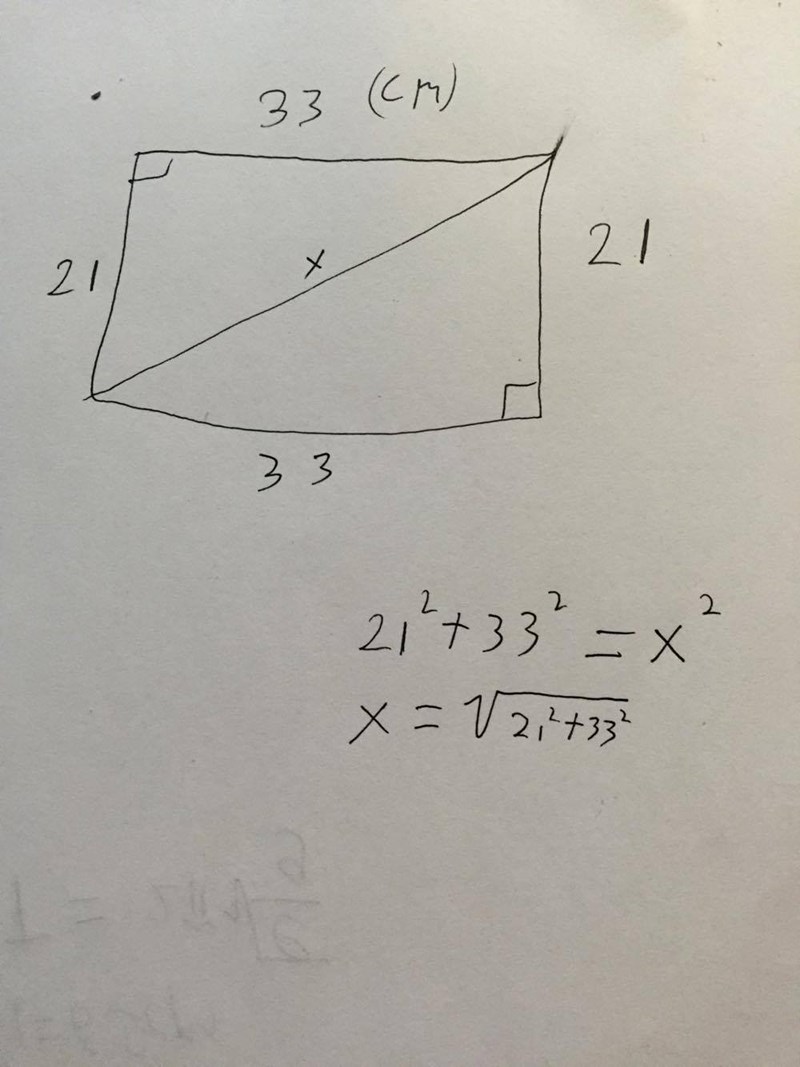 33 (cm)
21
x
21
33
21²+33² = x²
x = √21²+33²